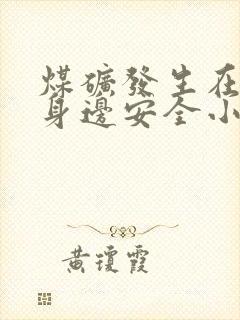 煤礦發生在
身邊安全小
黃瓊霞